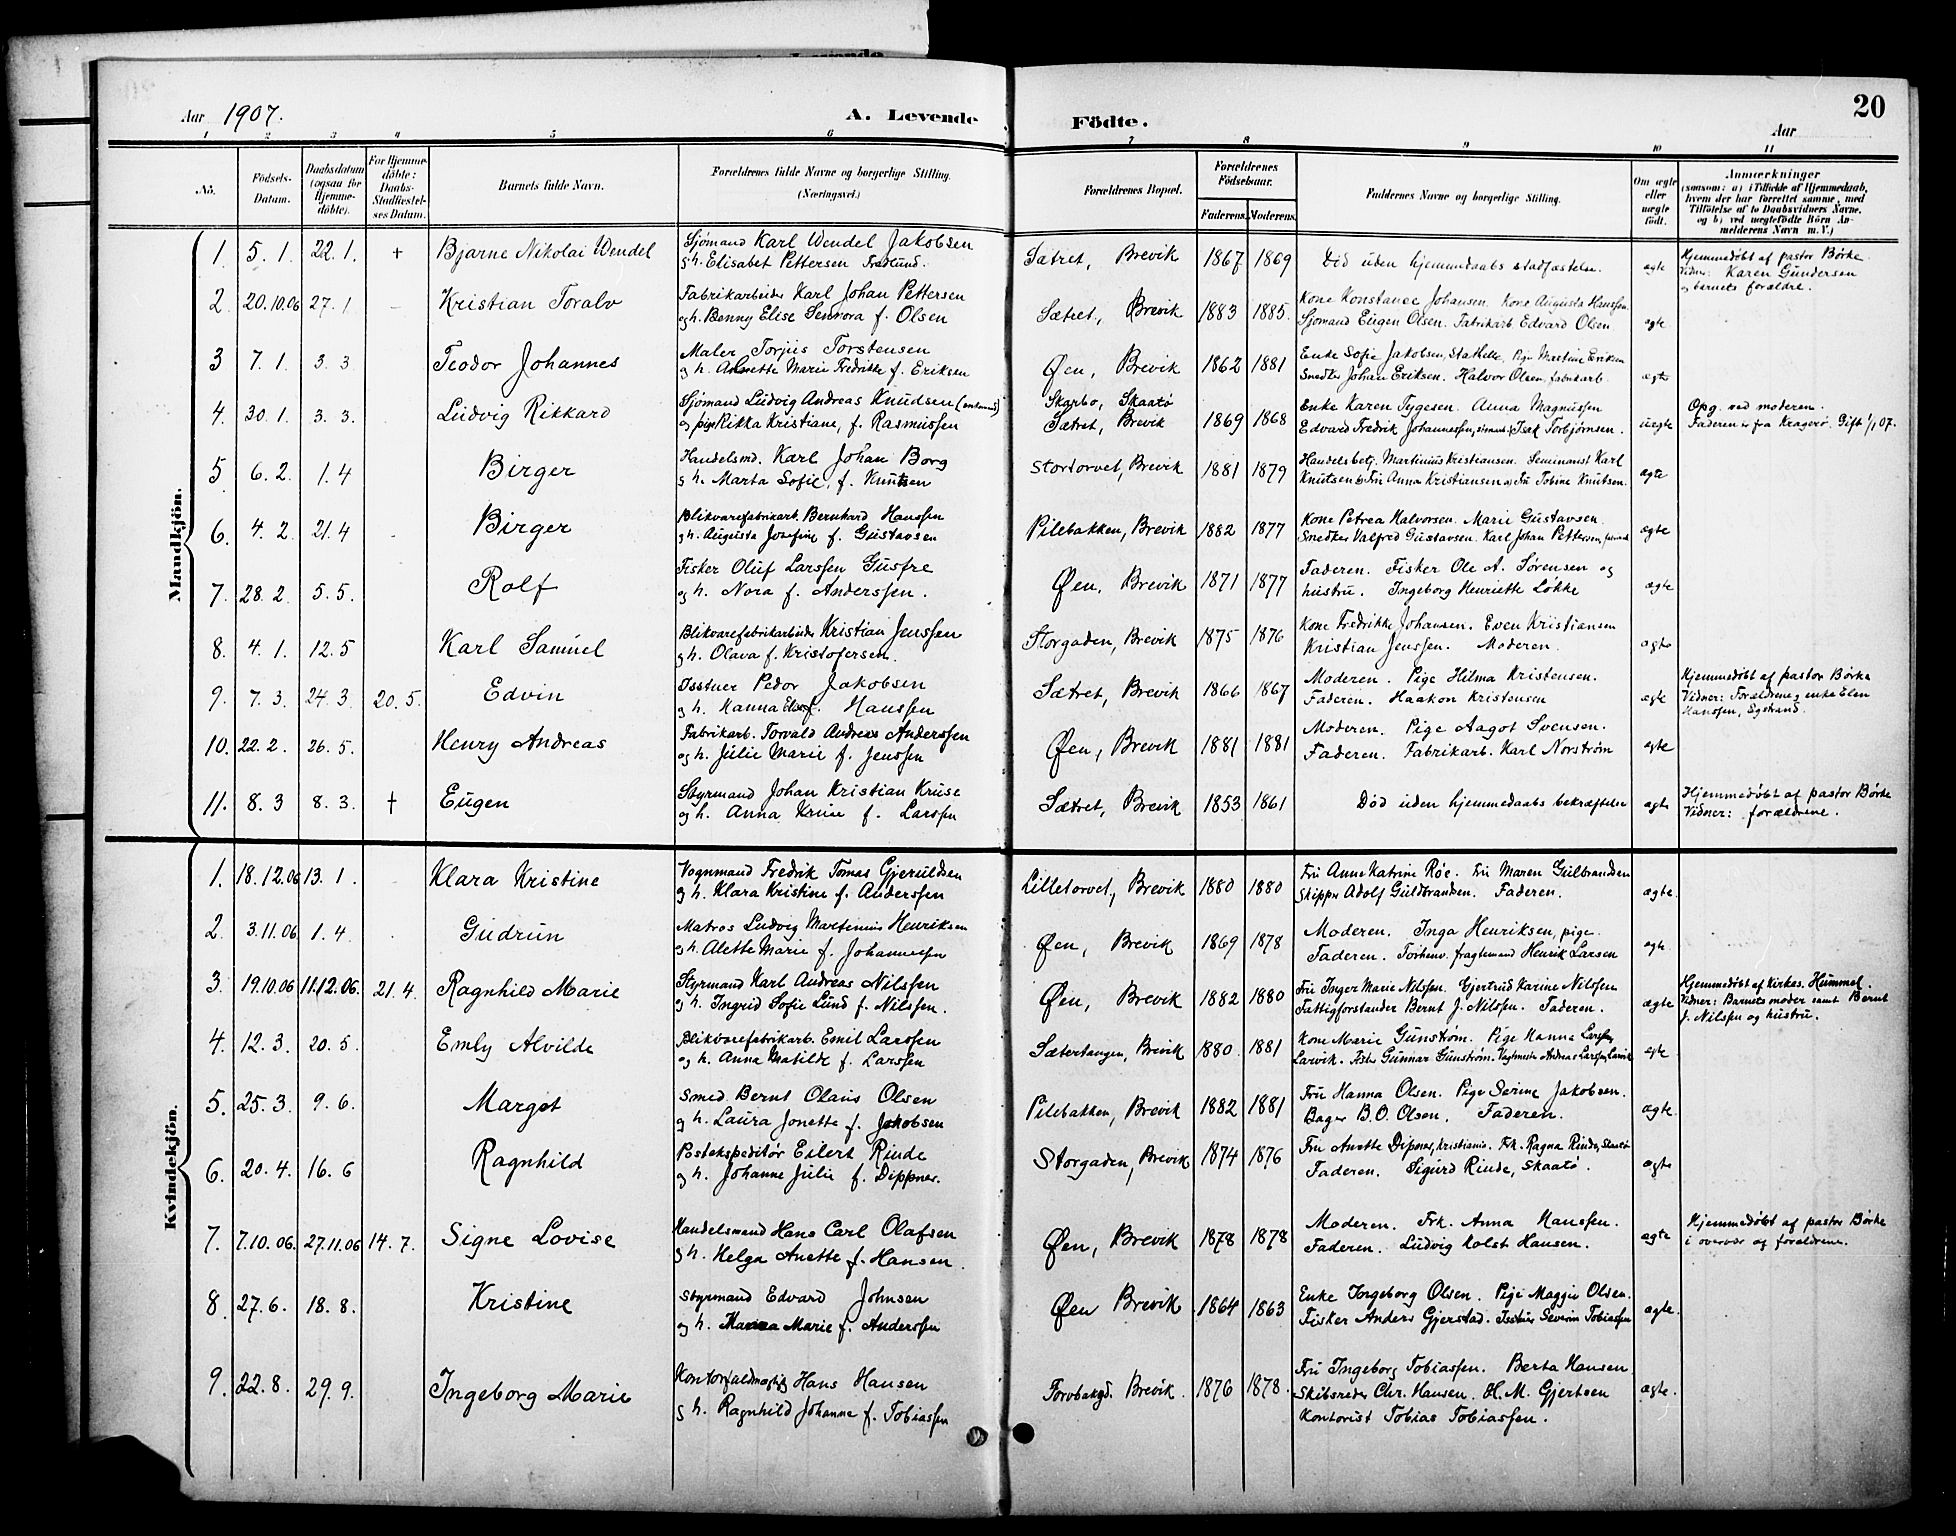 Levende
20
Aar 1907. A. Levende Födte. Aar
1 2 3 4 5 6 7 8 9 10 11
No. Födsels-Datum. Daabsdatum (ogsaa for Hjemme-döbte). For Hjemme-döbte: Daabs-Stadfæstel-ses Datum. Barnets fulde Navn. Forældrenes fulde Navne og borgerlige Stilling. (Næringsvei.) Forældrenes Bopæl. Forældrenes Födselsaar. Faderens. Moderens. Faddernes Navne og borgerlige Stilling. Om ægte eller uægte født. Anmærkninger (saasom: a) i Tilfælde af Hjemmedaab, hvem der har forrettet samme, med Tilföielse af to Daabsvidners Navne, og b) ved uægtefödte Börn An-melderens Navn m. V.)
Mandkjön.
1. 5. 1. 22. 1. + Bjarne Nikolai Wendel Sjömand Karl Wendel Jakobsen Sætret, Brevik 1867 1869 Död uden hjemmedaabs stadfæstelse. ægte Hjemmedøbt af pastor Börke.
g h. Elisabet Pettersen Fredlund. Vidner: Karen Gundersen
og barnets forældre.
2 20.10.06 27. 1 Kristian Toralv Fabrikarbeider Karl Johan Pettersen Sætret, Brevik 1883 1885. Kone Konstance Johansen. Kone Augusta Hanssen. ægte
og h. Benny Elise Senora f. Olsen Sjømand Eugen Olsen. Fabrikarb. Edvard Olsen
3 7. 1. 3. 3. Teodor Johannes Maler Torjus Torstensen Øen, Brevik 1862 1881 Enke Sofie Jakobsen, Stathelle, Pige Martine Eriksen ægte
og h. Marie Fredrikke f. Eriksen Johan Eriksen. Halvor Olsen, fabrikarb.
4. 30. 1. 3. 3. Ludvig Rikkard Sjömand Ludvig Andreas Knudsen Skarbo, Skaatø 1869 1868 Enke Karen Tygesen. Anna Magnussen uægte Opg. ved moderen.
og pige Rikka Kristiane, f. Rasmussen Sætret, Brevik Edvard Fredrik Johannessen, Isak Torbjørnsen. Faderen er fra Kragerø. Gift 1/1 07.
5 6. 2. 1. 4 Birger Handelsmd. Karl Johan Borg Stortorvet, Brevik 1881 1879 Handelsbetj. Martinius Kristiansen. Seminarist Karl ægte
g h. Marta Sofie, f. Knutsen Knutsen Fru Anna Kristiansen og Fru Tobine Knutsen.
6. 4. 2. 21. 4 Birger Blikvarefabrikarb. Bernhard Hanssen Pilebakken, Brevik 1882 1877 Kone Petrea Halvorsen. Marie Gustavsen. ægte
og h. Augusta Josefine f. Gustavsen Snedker Valfred Gustavsen. Karl Johan Pettersen,
7. 28. 2. 5. 5. Rolf Fisker Oluf Larssen Gusfre Øen, Brevik 1871 1877 Faderen. Fisker Ole A. Sørensen og ægte
og h. Nora f. Anderssen. hustru. Ingeborg Henriette Løkke
8. 4. 1. 12. 5 Karl Samuel Blikvarefabrikarbeider Kristian Jenssen Storgaden, Brevik 1875 1876 Kone Fredrikke Johansen. Even Kristiansen ægte
g h. Olava f. Kristofersen. Kristian Jenssen. Moderen.
9. 7. 3. 24. 3. 20. 5. Edvin Isstuer Peder Jakobsen Sætret, Brevik 1866 1867 Moderen. Pige Hilma Kristensen. ægte Hjemmedøbt af pastor Børke
og h. Hanna f. Hanssen Faderen. Haakon Kristensen Vidner: Forældrene og enke Elen
Hanssen, Systrand.
10. 22. 2. 26. 5. Henry Andreas Fabrikarb. Torvald Andreas Anderssen Øen, Brevik 1881 1881 Moderen. Pige Aagot Svensen. ægte
og h. Julie Marie f. Jenssen Faderen. Fabrikarb. Karl Norstrøm
11. 8. 3 8. 3. † Eugen Styrmand Johan Kristian Kruse Sætret, Brevik 1853 1861 Død uden hjemmedaabs bekræftelse ægte Hjemmedøbt af pastor Børke
og h. Anna Karine f. Larssen Vidner: forældrene.
Kvindekjön.
1. 18.12.06 13. 1. Klara Kristine Vognmand Fredrik Tomas Gjeruldsen Lilletorvet, Brevik 1880 1880 Fru Anne Katrine Røe. Fru Maren Gulbrandsen ægte.
og h. Klara Kristine f. Anderssen Skipper Adolf Guldbrandsen. Faderen.
2. 3.11.06 1. 4. Gudrun Matros Ludvig Martinius Henriksen Øen, Brevik 1869 1878 Moderen. Inga Henriksen, pige. ægte.
g h. Alette Marie f. Johannessen Faderen. Forhenv. fragtemand Henrik Larsen
3. 19.10.06 11.12.06. 21. 4. Ragnhild Marie Styrmand Karl Andreas Nilssen Øen, Brevik 1882 1880 Fru Inger Marie Nilssen. Gjertrud Karine Nilssen ægte Hjemmedøbt af kirkes. Hummel.
g h. Ingrid Sofie Lund f. Nilssen. Fattigforstander Bernt J. Nilssen. Faderen. Vidner: Barnets moder samt Bernt
J. Nilssen og hustru.
4. 12. 3. 20. 5. Emly Alvilde Blikvarefabrikarb. Emil Larssen Sætertangen, Brevik 1880. 1881 Kone Marie Gunstrøm. Pige Hanna Larssen ægte.
og h. Anna Matilde f. Larssen Larvik. Gunnar Gunstrøm. Andreas Larssen, Larvik
5. 25. 3. 9. 6. Margot Smed Bernt Olaus Olsen Pilebakken, Brevik 1882 1881 Fru Hanna Olsen. Pige Serine Jakobsen. ægte.
og h. Laura Jonette f. Jakobsen Bager B. O. Olsen. Faderen.
6. 20. 4. 16. 6 Ragnhild Postekspeditør Eilert Rinde Storgaden, Brevik 1874 1876 Fru Anette Dippner, Kristiania. Frk. Ragna Rinde, Skaatø ægte
og h. Johanne Julie f. Dippner. Faderen. Sigurd Rinde, Skaatø.
7. 7.10.06. 27.11.06 14. 7. Signe Lovise Handelsmand Hans Carl Olafsen Øen, Brevik 1878 1878 Moderen. Frk. Anna Hanssen. ægte Hjemmedøbt af pastor Børke
g h. Helga Anette f. Hansen. Faderen. Ludvig Holst Hansen. i overvær af forældrene.
8. 27. 6. 18. 8. Kristine Styrmand Edvard Johnsen Øen Brevik 1864 1863 Enke Ingeborg Olsen. Pige Maggie Olsen. ægte.
og h. Marie f. Anderssen Fisker Anders Gjerstad. Isstuer Severin Tobiassen
9. 22. 8. 29. 9. Ingeborg Marie Kontorfuldmægtig Hans Hansen Brevik. 1876 1878. Fru Ingeborg Tobiassen. Berta Hansen ægte.
g h. Ragnhild Johanne f. Tobiassen Skibsreder Chr. Hansen. H. M. Gjertsen
Kontorist Tobias Tobiassen.